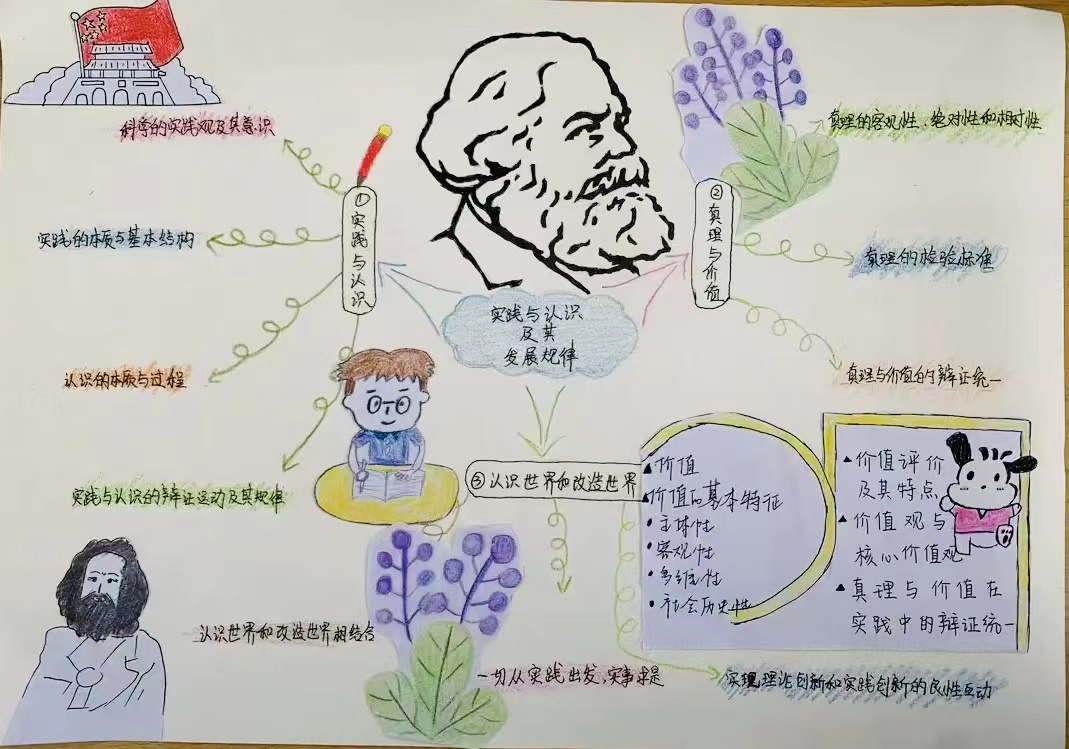 实践与认识
及其
发展规律
①实践与认识
科学的实践观及其意识
实践的本质与基本结构
认识的本质与过程
实践与认识的辩证运动及其规律
②真理与价值
真理的客观性、绝对性和相对性
真理的检验标准
真理与价值的辩证统一
③认识世界和改造世界
认识世界和改造世界相结合
一切从实践出发,实事求是
实现理论创新和实践创新的良性互动
▲价值
▲价值的基本特征
•主体性
•客观性
•多维性
•社会历史性
▲价值评价
及其特点
▲价值观与
核心价值观
▲真理与价值在
实践中的辩证统一